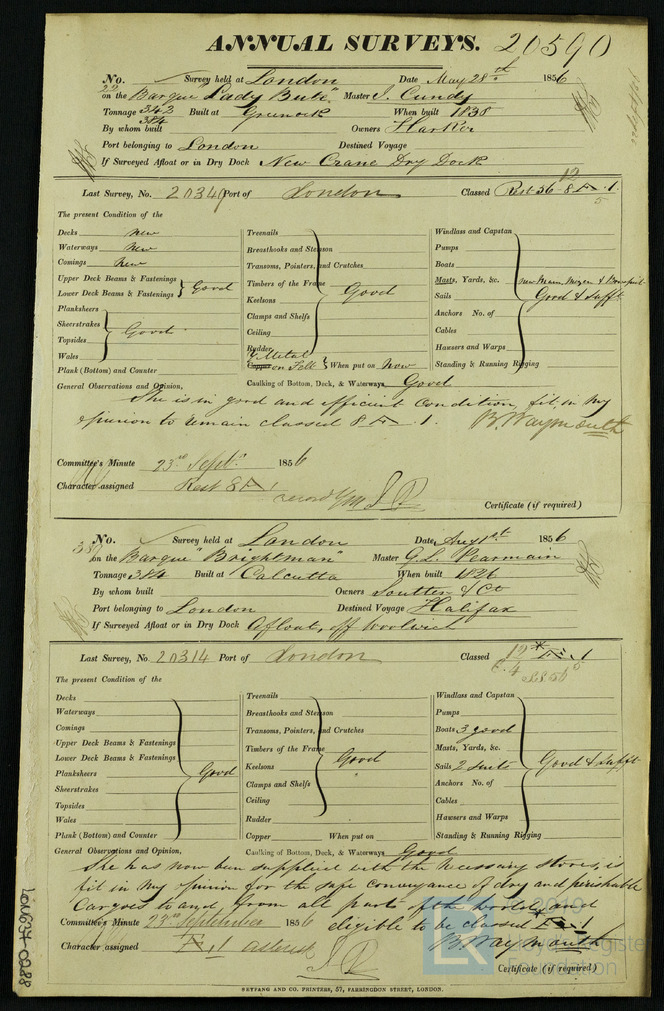 ANNUAL SURVEYS. 20590
No. Survey held at London Date May 28th 1856
22 on the Barque "Lady Bute" Master J. Cundy
Tonnage 342 384 Built at Greenock When built 1838
By whom built Owners Harker
Port belonging to London Destined Voyage
If Surveyed Afloat or in Dry Dock New Crane Dry Dock
Last Survey, No. 20349 Port of London Classed Rest 56 8 1.
The present Condition of the
Decks New
Waterways New
Comings New
Upper Deck Beams & Fastenings
Lower Deck Beams & Fastenings
Good
Planksheers
Sheerstrakes
Topsides
Wales
Good
Plank (Bottom) and Counter
Treenails
Breasthooks and Stemson
Transoms, Pointers, and Crutches
Timbers of the Frame
Keelsons
Clamps and Shelfs
Ceiling
Rudder
Good
Y Metal
Copper on Felt When put on Now
Caulking of Bottom, Deck, & Waterways Good
Windlass and Capstan
Pumps
Boats
Masts, Yards, &c. new Main, Mizen & Bowsprit
Sails Good & Sufft
Anchors No. of
Cables
Hawsers and Warps
Standing & Running Rigging
General Observations and Opinion,
She is in good and efficient Condition, fit, in my
opinion to remain classed 8 1. B. Waymouth
Committee's Minute 23rd Septr. 1856
Character assigned Rest 8 1
record YM
Certificate (if required)
No. Survey held at London Date Augt 1st 1856
on the Barque "Brightman" Master G. L. Pearmain
Tonnage 384 Built at Calcutta When built 1826
By whom built Owners Soutter & Co
Port belonging to London Destined Voyage Halifax
If Surveyed Afloat or in Dry Dock Afloat, off Woolwich
Last Survey, No. 20314 Port of London Classed 12 * 1
The present Condition of the
Decks
Waterways
Comings
Upper Deck Beams & Fastenings
Lower Deck Beams & Fastenings
Planksheers
Sheerstrakes
Topsides
Wales
Plank (Bottom) and Counter
Good
Treenails
Breasthooks and Stemson
Transoms, Pointers, and Crutches
Timbers of the Frame
Keelsons
Clamps and Shelfs
Ceiling
Rudder
Good
Copper When put on
Caulking of Bottom, Deck, & Waterways Good
Windlass and Capstan
Pumps
Boats 3 good
Masts, Yards, &c.
Sails 2 suits Good & Sufft
Anchors No. of
Cables
Hawsers and Warps
Standing & Running Rigging
General Observations and Opinion,
She has now been supplied with the necessary stores, is
fit in my opinion for the safe conveyance of dry and perishable
Cargoes to and from all parts of the World and
Committee's Minute 23rd September 1856 eligible to be classed * 1
Character assigned 1 asterisk B. Waymouth
Certificate (if required)
SEYFANG AND CO. PRINTERS, 57, FARRINGDON STREET, LONDON.
LON634-0288
© 2019
Lloyd's Register
Foundation